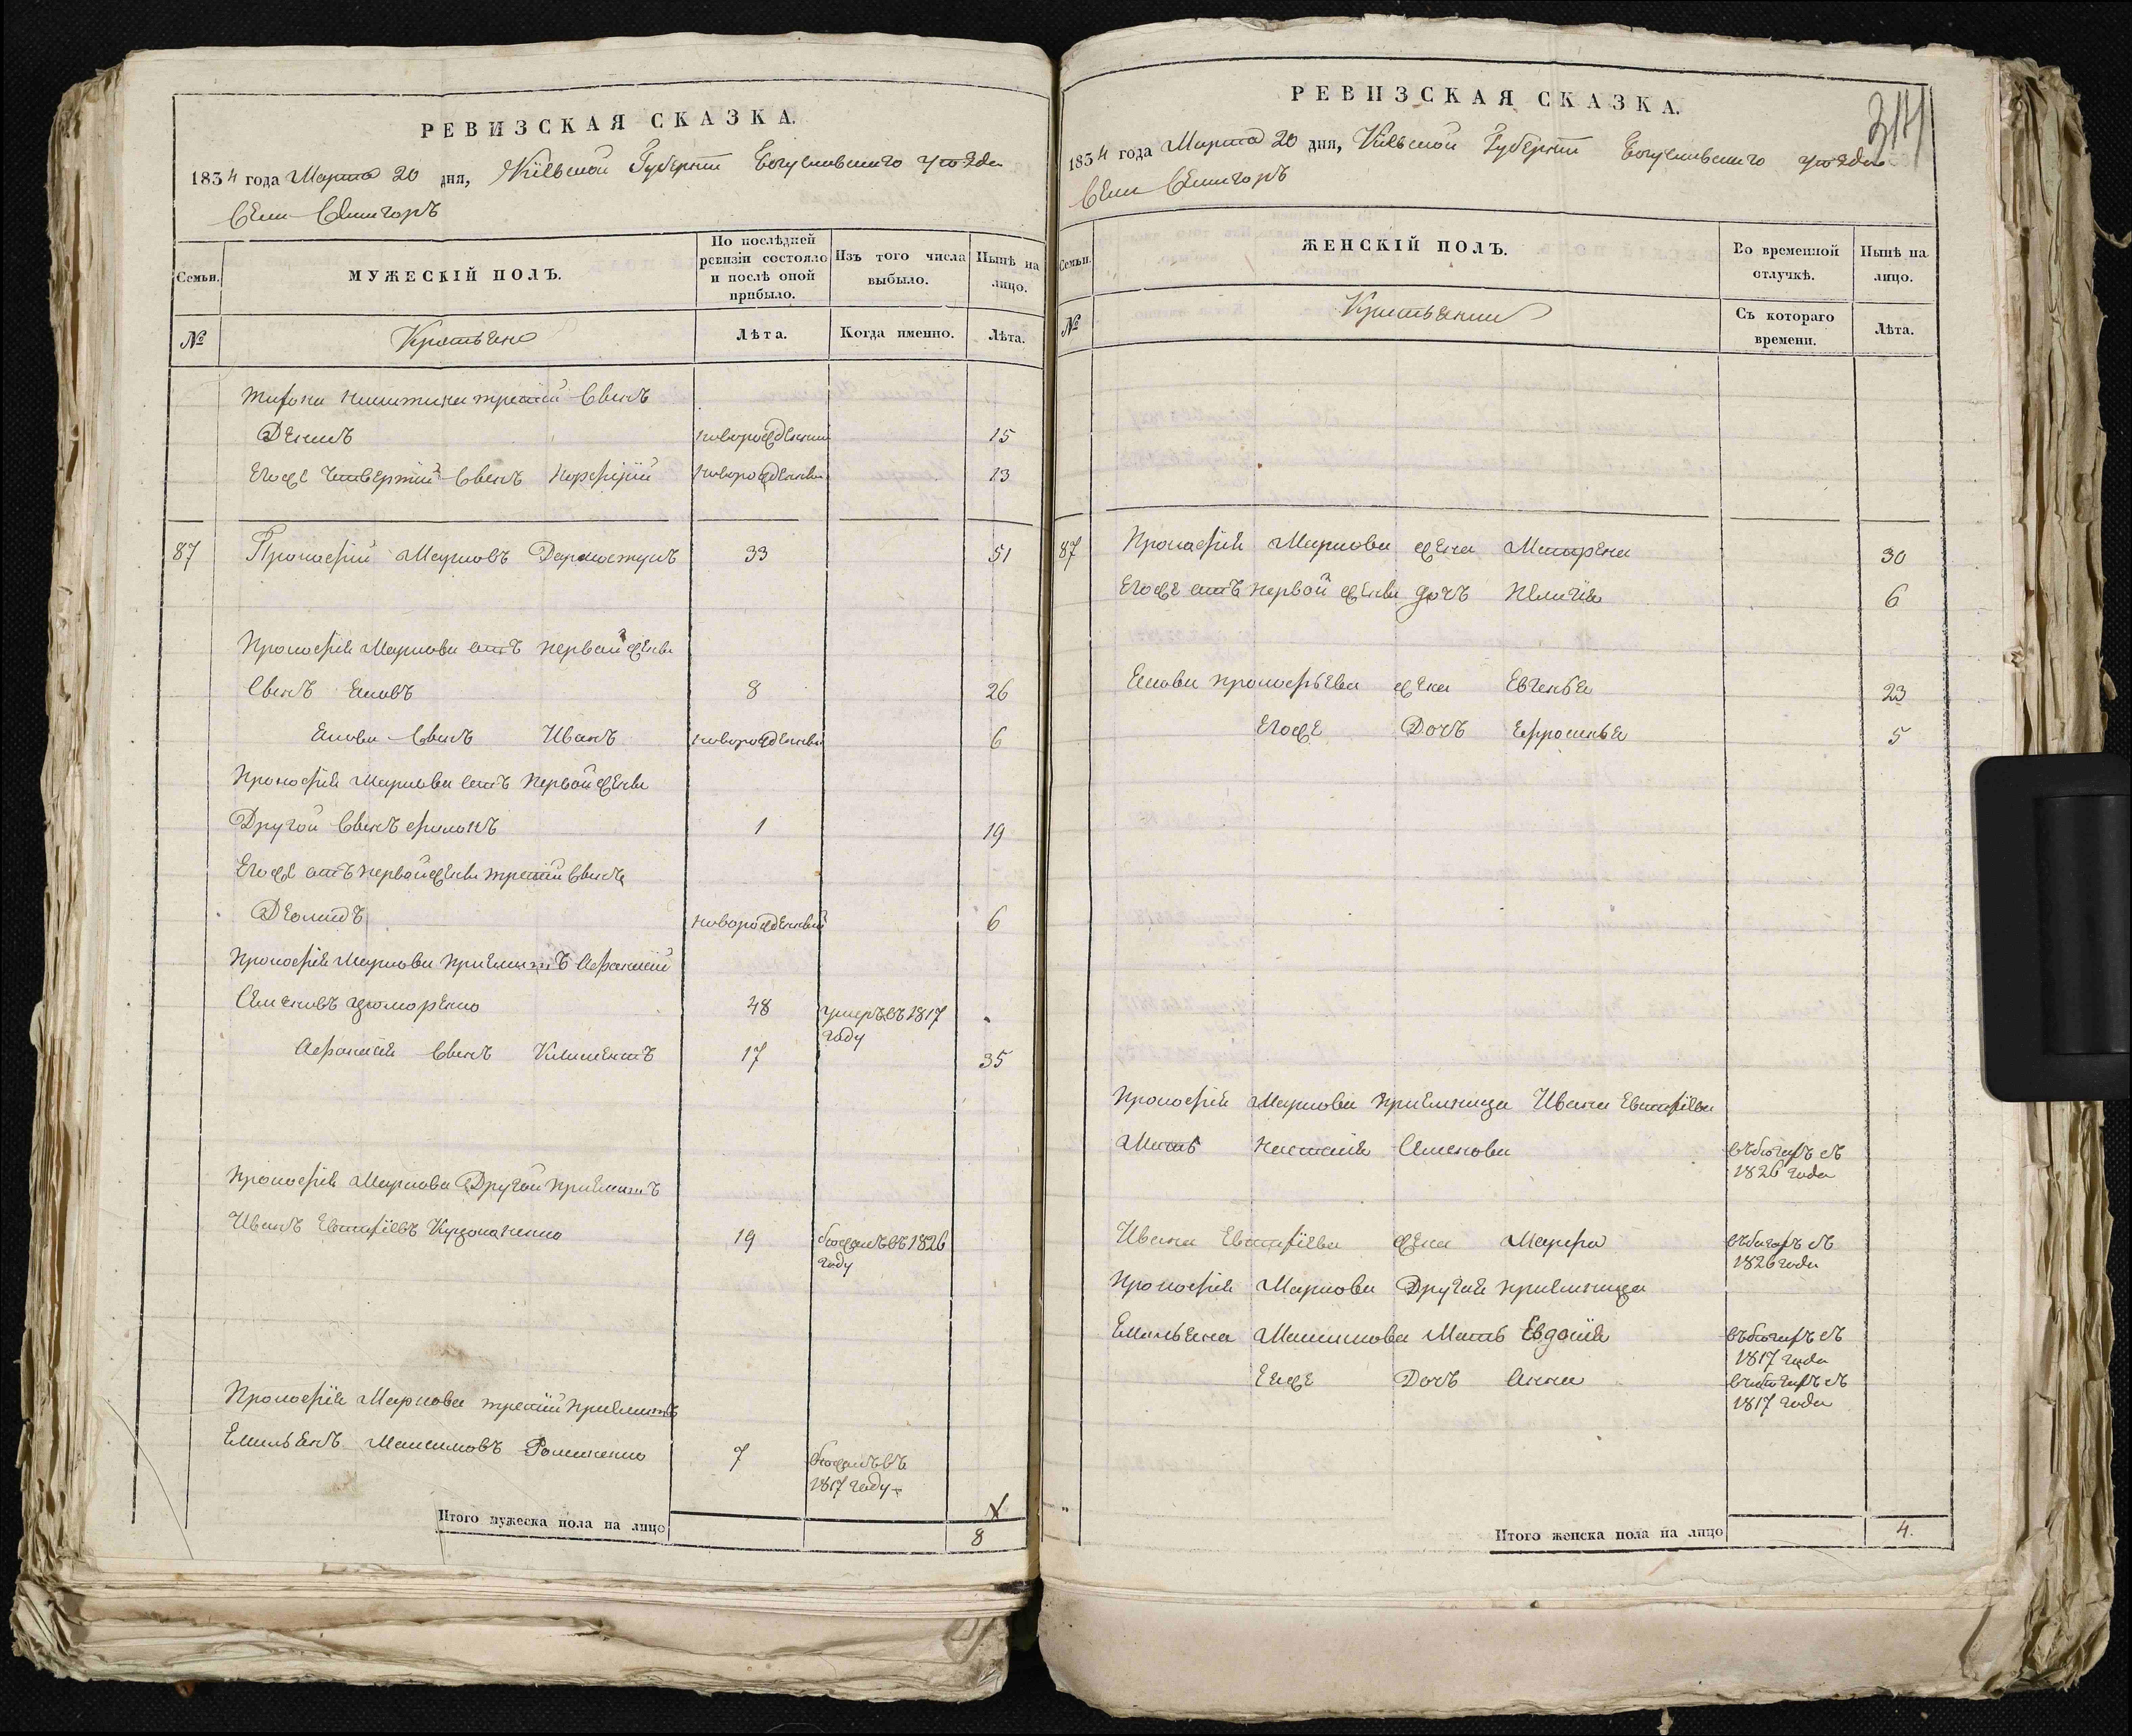 РЕВИЗСКАЯ СКАЗКА.
1834 года Марта 20 дня, Кіевской Губерніи Богуславскаго уезда
Села Селигоръ
Семьи.
МУЖЕСКІЙ ПОЛЪ.
По послѣдней ревизіи состояло и послѣ оной прибыло.
Изъ того числа выбыло.
Нынѣ на лицо.
№
Крестьяне
Лѣта.
Когда именно.
Лѣта.
Никитина третій Сынъ
Денисъ новорожденный 15
Егоже Четвертый Сынъ Порфирій новорожденный 13
87 Прокофій Марковъ 33 51
Прокофія Маркова отъ первой жены
Сынъ Яковъ 8 26
Якова Сынъ Иванъ новорожденный 6
Прокофія Маркова отъ первой жены
Другой Сынъ Филонъ 1 19
Егоже отъ первой жены третій Сынъ
Деомидъ новорожденный 6
Прокофія Маркова Приемышъ Афанасій
Семеновъ 48 умеръ въ 1817
году
Афанасія Сынъ Климентъ 17 35
Прокофія Маркова Другой приемышъ
Иванъ Евстафіевъ 19 бежалъ въ 1826
году
Прокофія Маркова третій приемышъ
Емельянъ Максимовъ Романенко 7 бежалъ въ
1817 году
Итого мужеска пола на лицо
8
РЕВИЗСКАЯ СКАЗКА.
1834 года Марта 20 дня, Кіевской Губерніи Богуславскаго уезда
Села Селигоръ
Семьи.
ЖЕНСКІЙ ПОЛЪ.
Во временной отлучкѣ.
Нынѣ на лицо.
№
Крестьянки
Съ котораго времени.
Лѣта.
87 Прокофія Маркова жена Матрена 30
Егоже отъ первой жены дочъ 6
Якова Прокофьева жена Евгенья 23
Егоже Дочъ Ефросинья 5
Прокофія Маркова приемыша Ивана Евстафіева
Мать Настасія Семенова въ бегахъ съ
1826 года
Ивана Евстафіева жена Марфа въ бегахъ съ
1826 года
Прокофія Маркова Другая приемыша
Емельяна Максимова Мать Евдокія въ бегахъ съ
1817 года
Еяже Дочъ Анна въ бегахъ съ
1817 года
Итого женска пола на лицо
4.